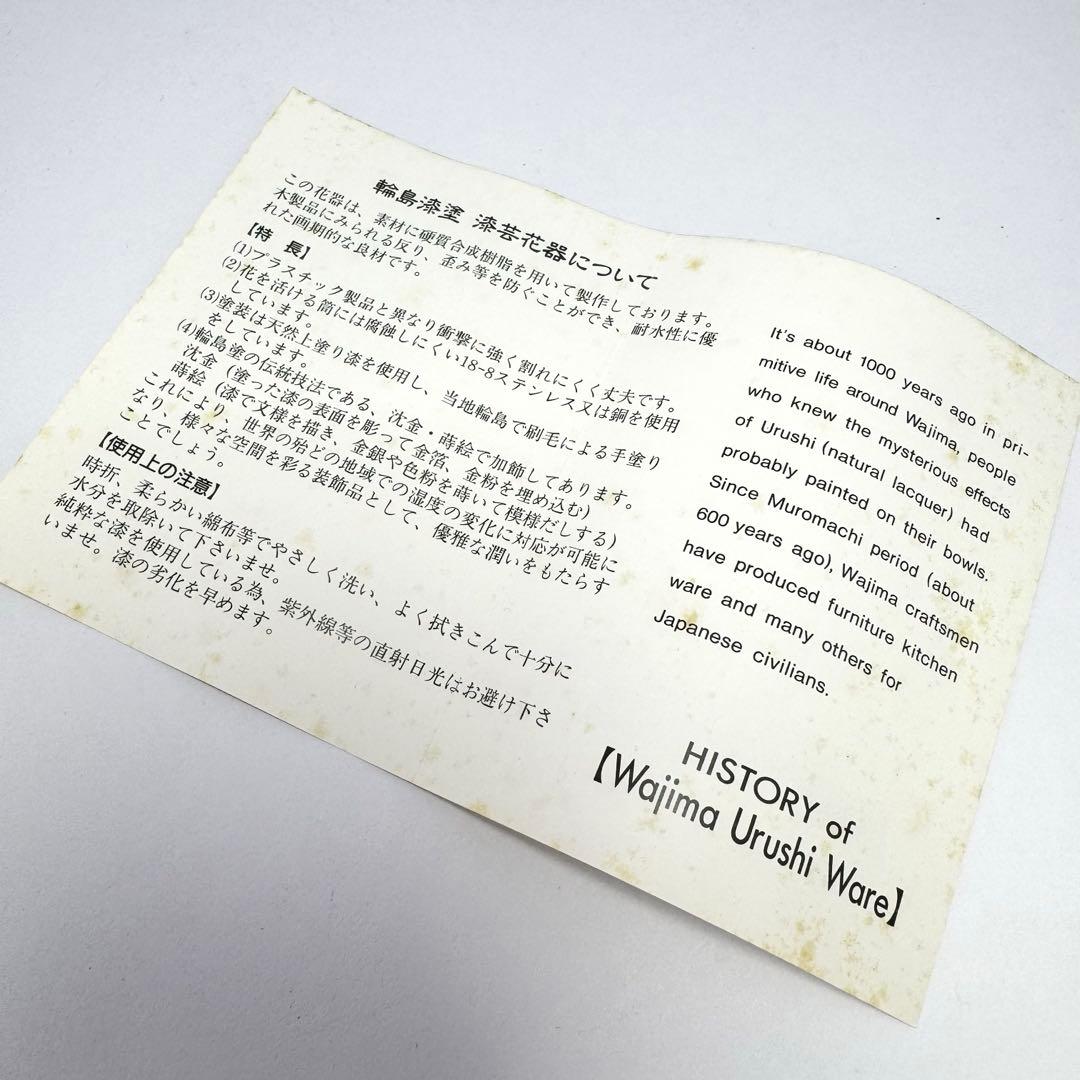 輪島漆塗 漆芸花器について
この花器は、素材に硬質合成樹脂を用いて製作しております。
木製品にみられる反り、歪み等を防ぐことができ、耐水性に優
れた画期的な良材です。
【特 長】
(1)プラスチック製品と異なり衝撃に強く割れにくく丈夫です。
(2)花を活ける筒には腐蝕しにくい18-8ステンレス又は銅を使用
しています。
(3)塗装は天然上塗り漆を使用し、当地輪島で刷毛による手塗り
をしています。
(4)輪島塗の伝統技法である、沈金・蒔絵で加飾してあります。
沈金 (塗った漆の表面を彫って金箔、金粉を埋め込む)
蒔絵 (漆で文様を描き、金銀や色粉を蒔いて模様だしする)
これにより、世界の殆どの地域での湿度の変化に対応が可能に
なり、様々な空間を彩る装飾品として、優雅な潤いをもたらす
ことでしょう。
【使用上の注意】
時折、柔らかい綿布等でやさしく洗い、よく拭きこんで十分に
水分を取除いて下さいませ。
純粋な漆を使用している為、紫外線等の直射日光はお避け下さ
いませ。漆の劣化を早めます。
It's about 1000 years ago in pri-
mitive life around Wajima, people
who knew the mysterious effects
of Urushi (natural lacquer) had
probably painted on their bowls.
Since Muromachi period (about
600 years ago), Wajima craftsmen
have produced furniture kitchen
ware and many others for
Japanese civilians.
HISTORY of
【Wajima Urushi Ware】